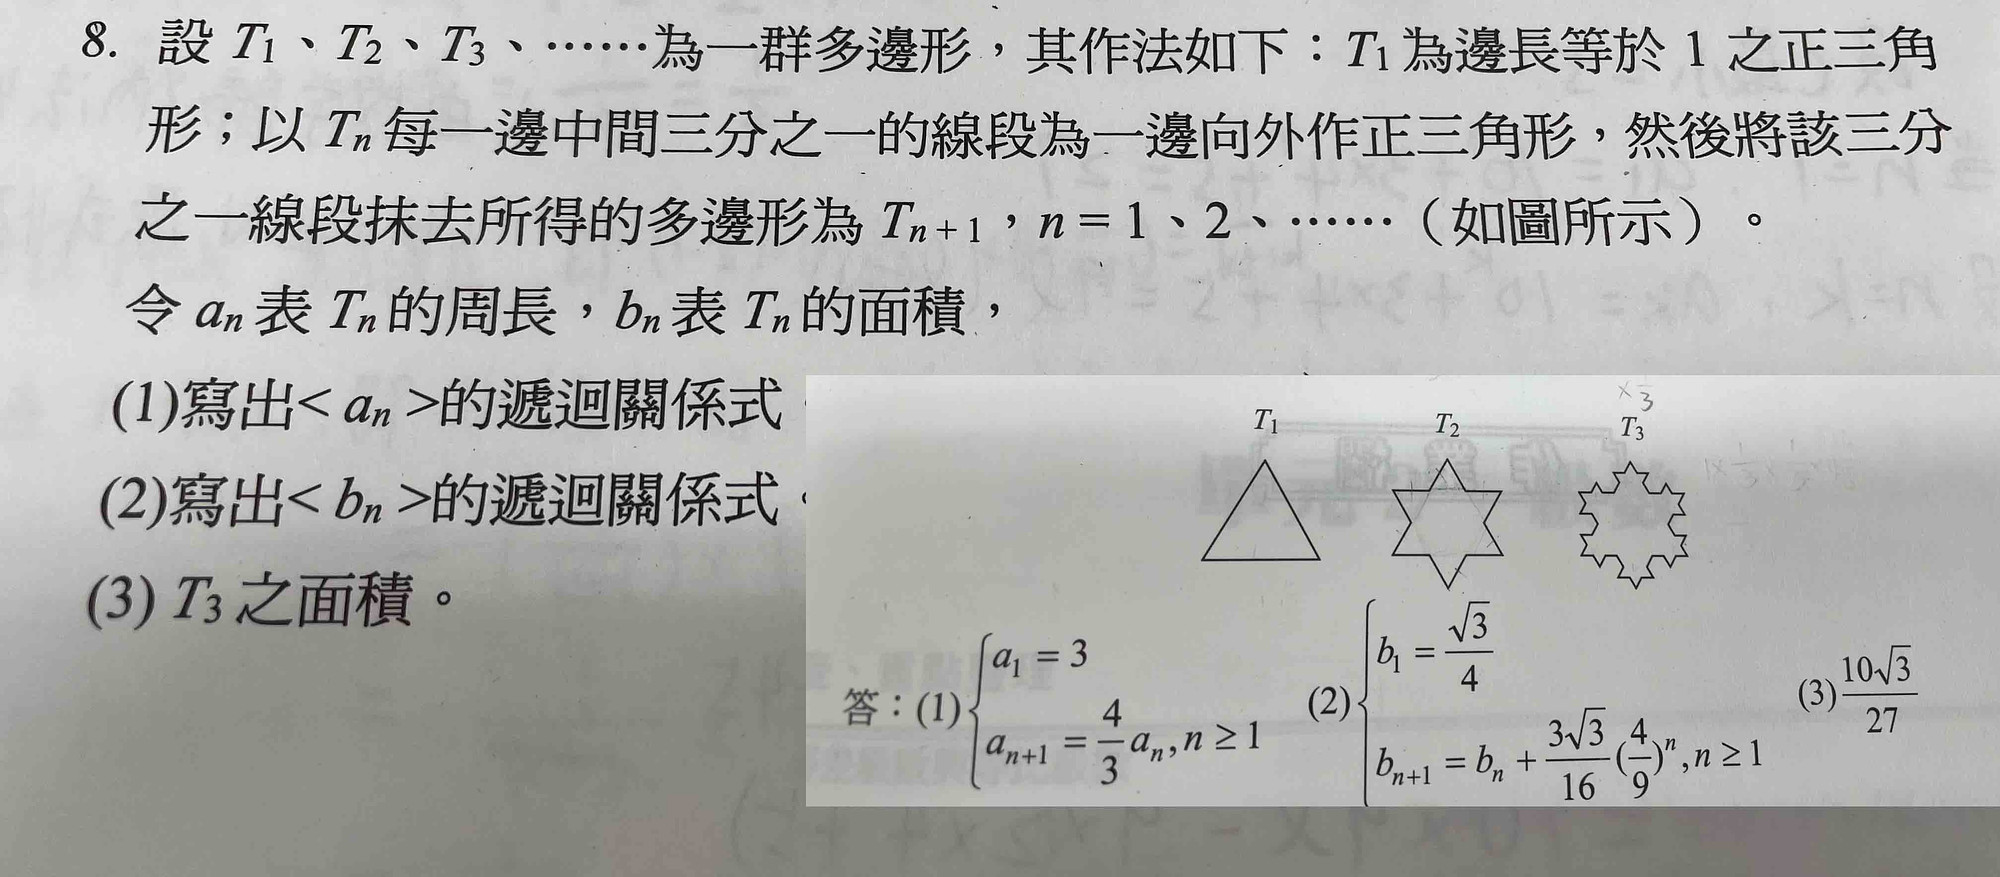 8. 設 T₁、T₂、T₃、……為一群多邊形，其作法如下：T₁為邊長等於 1 之正三角
形；以 Tₙ每一邊中間三分之一的線段為一邊向外作正三角形，然後將該三分
之一線段抹去所得的多邊形為 Tₙ₊₁，n = 1、2、……（如圖所示）。
令 aₙ表 Tₙ的周長，bₙ表 Tₙ的面積，
(1)寫出< aₙ >的遞迴關係式。
(2)寫出< bₙ >的遞迴關係式。
(3) T₃之面積。
T₁ T₂ T₃
答：(1) { a₁ = 3, aₙ₊₁ = 4/3 aₙ, n ≥ 1 (2) { b₁ = √3/4, bₙ₊₁ = bₙ + 3√3/16 (4/9)ⁿ, n ≥ 1 (3) 10√3/27